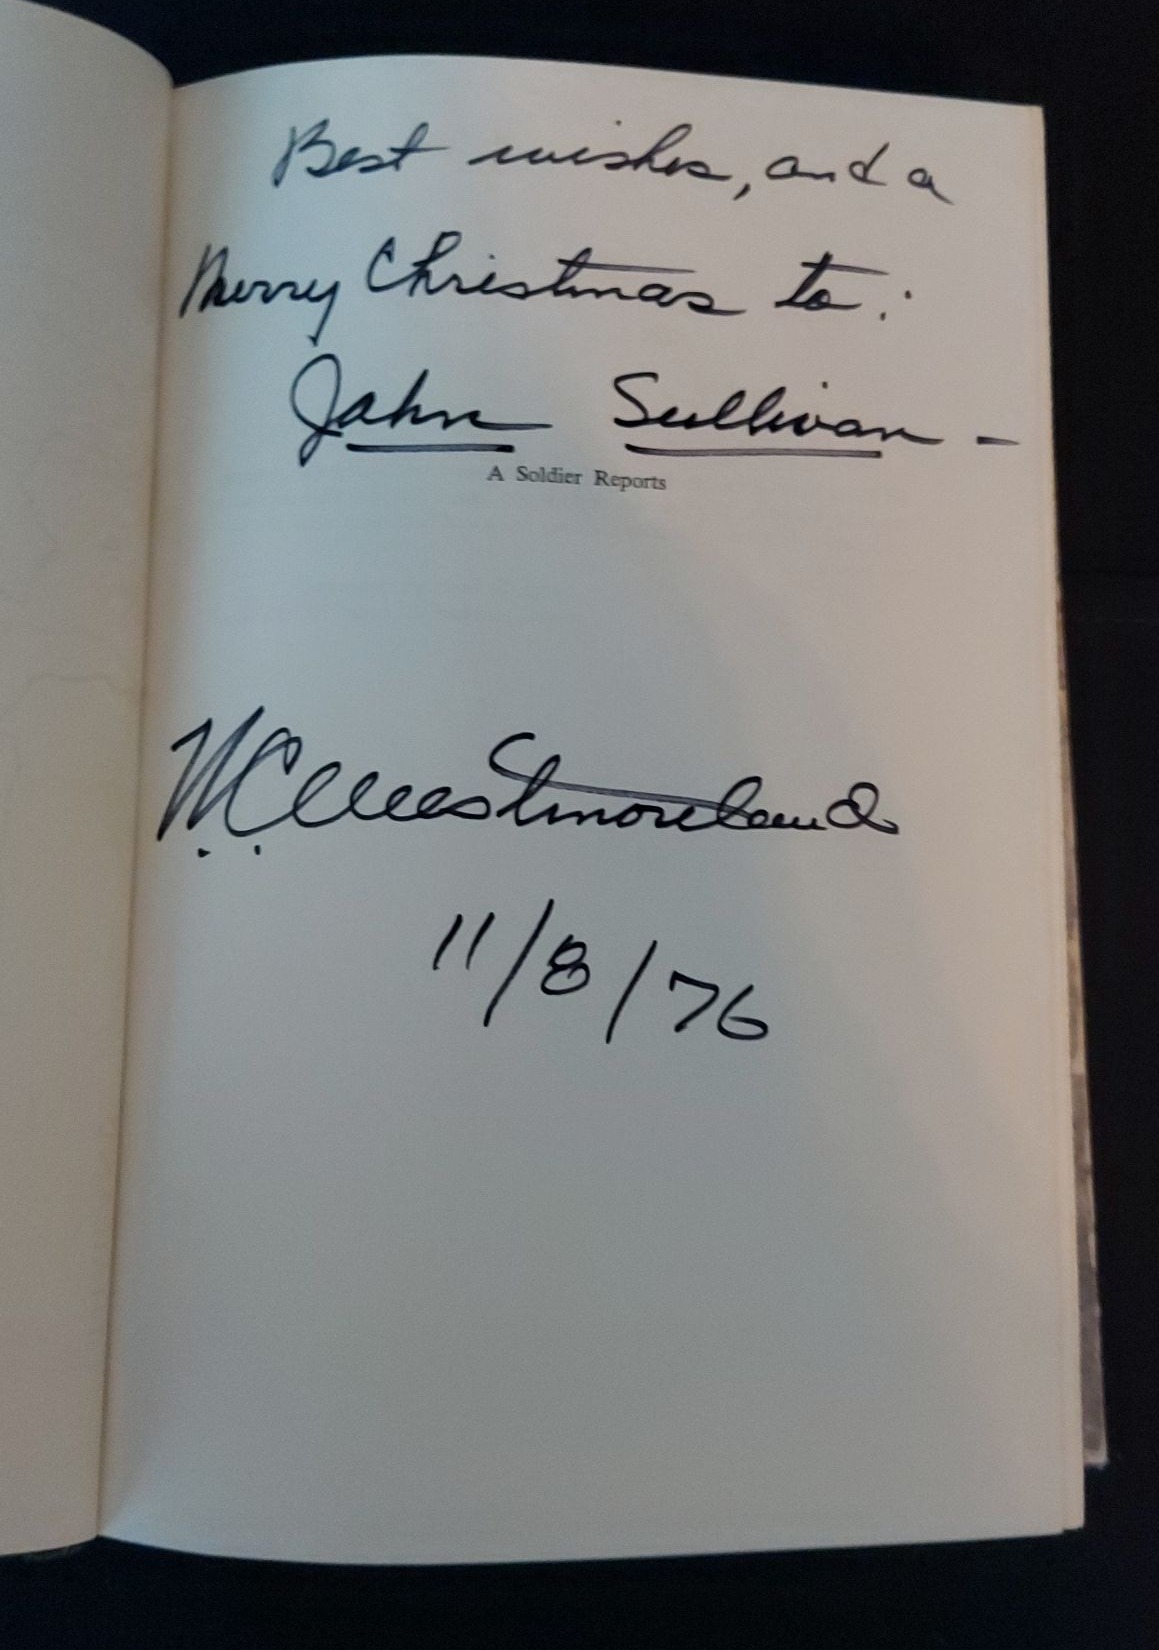 Best wishes, and a
Merry Christmas to:
John Sullivan -
A Soldier Reports
W.C. Westmoreland
11/8/76